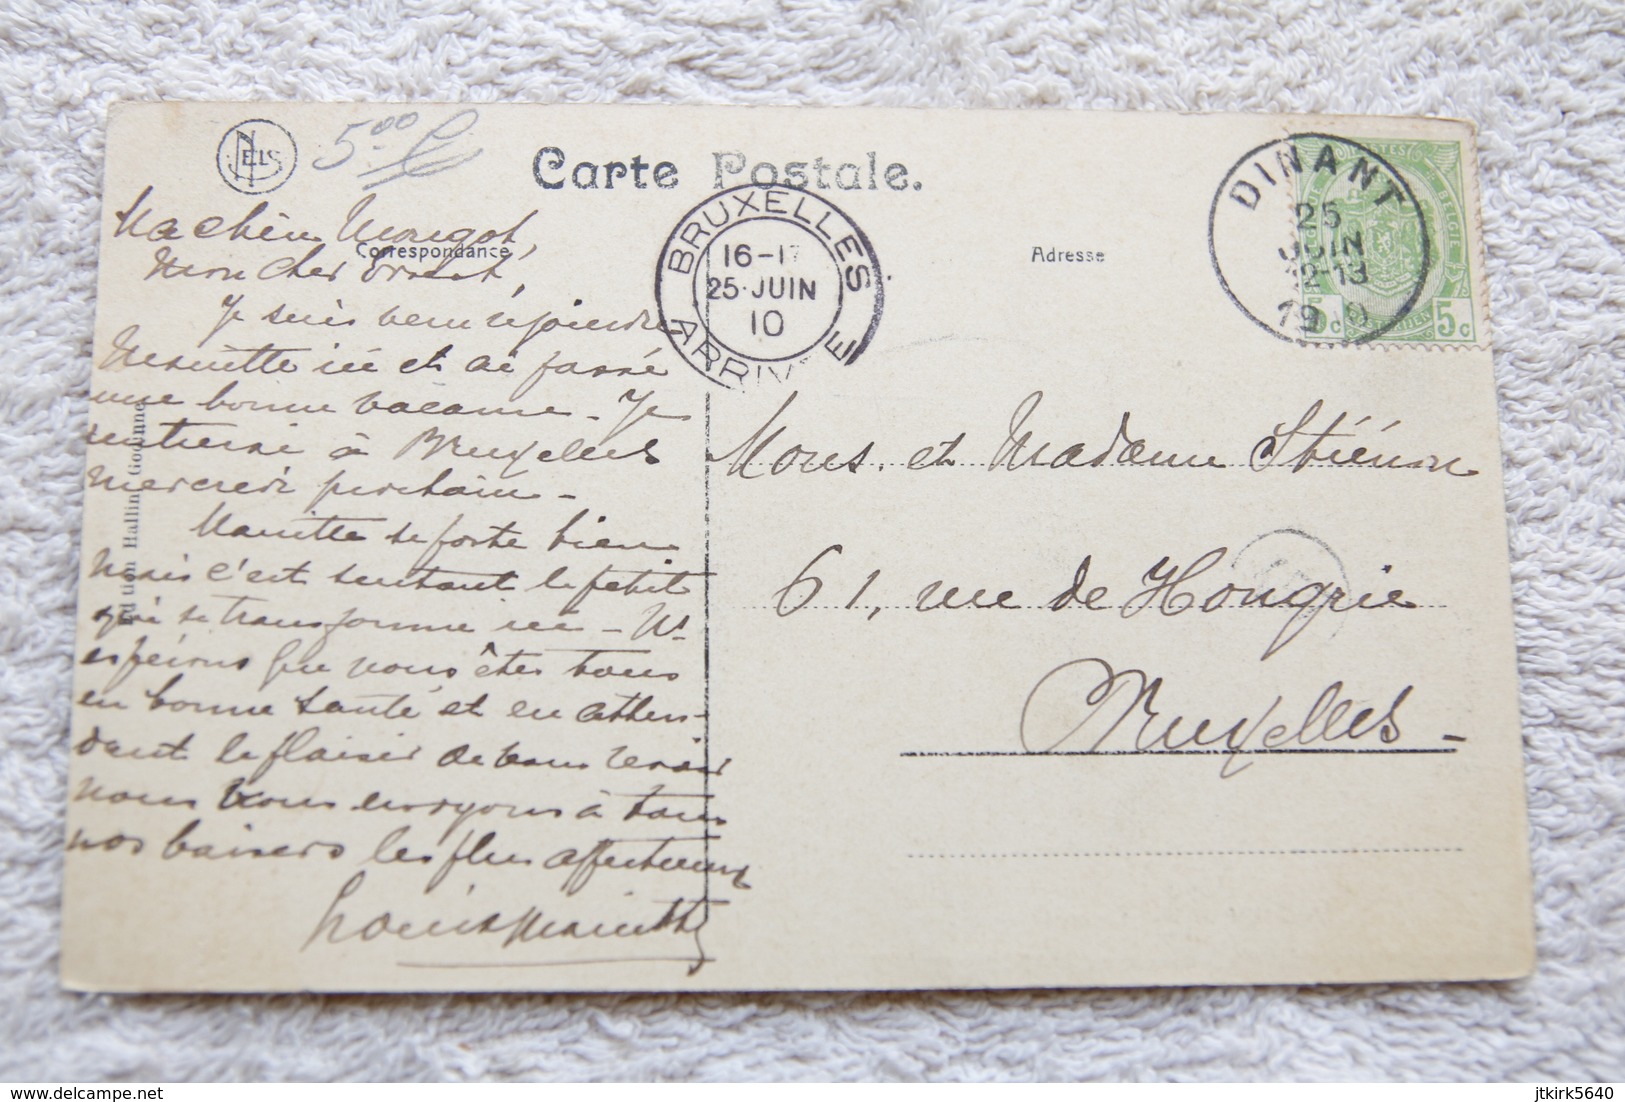 NELS
5.00 €
Carte Postale.
Correspondance
Adresse
Ma chère Margot,
Mon cher Ernest,
Je suis venu rejoindre
Mariette ici et ai passé
une bonne vacance - Je
rentrerai à Bruxelles
Mercredi prochain -
Mariette se porte bien
Mais c'est surtout le petit
qui se transforme ici - Ns
espérons que vous êtes tous
en bonne santé et en atten-
dant le plaisir de vous revoir
nous vous envoyons à tous
nos baisers les plus affectueux
Edition Hallin Godinne
BRUXELLES
16-17
25 JUIN
10
ARRIVEE
DINANT
25
JUIN
12-13
1910
POSTES
BELGIE
5c
5c
Mons. et Madame Stiénon
61, rue de Hongrie
Bruxelles -
delcampe.net
jtkirk5640